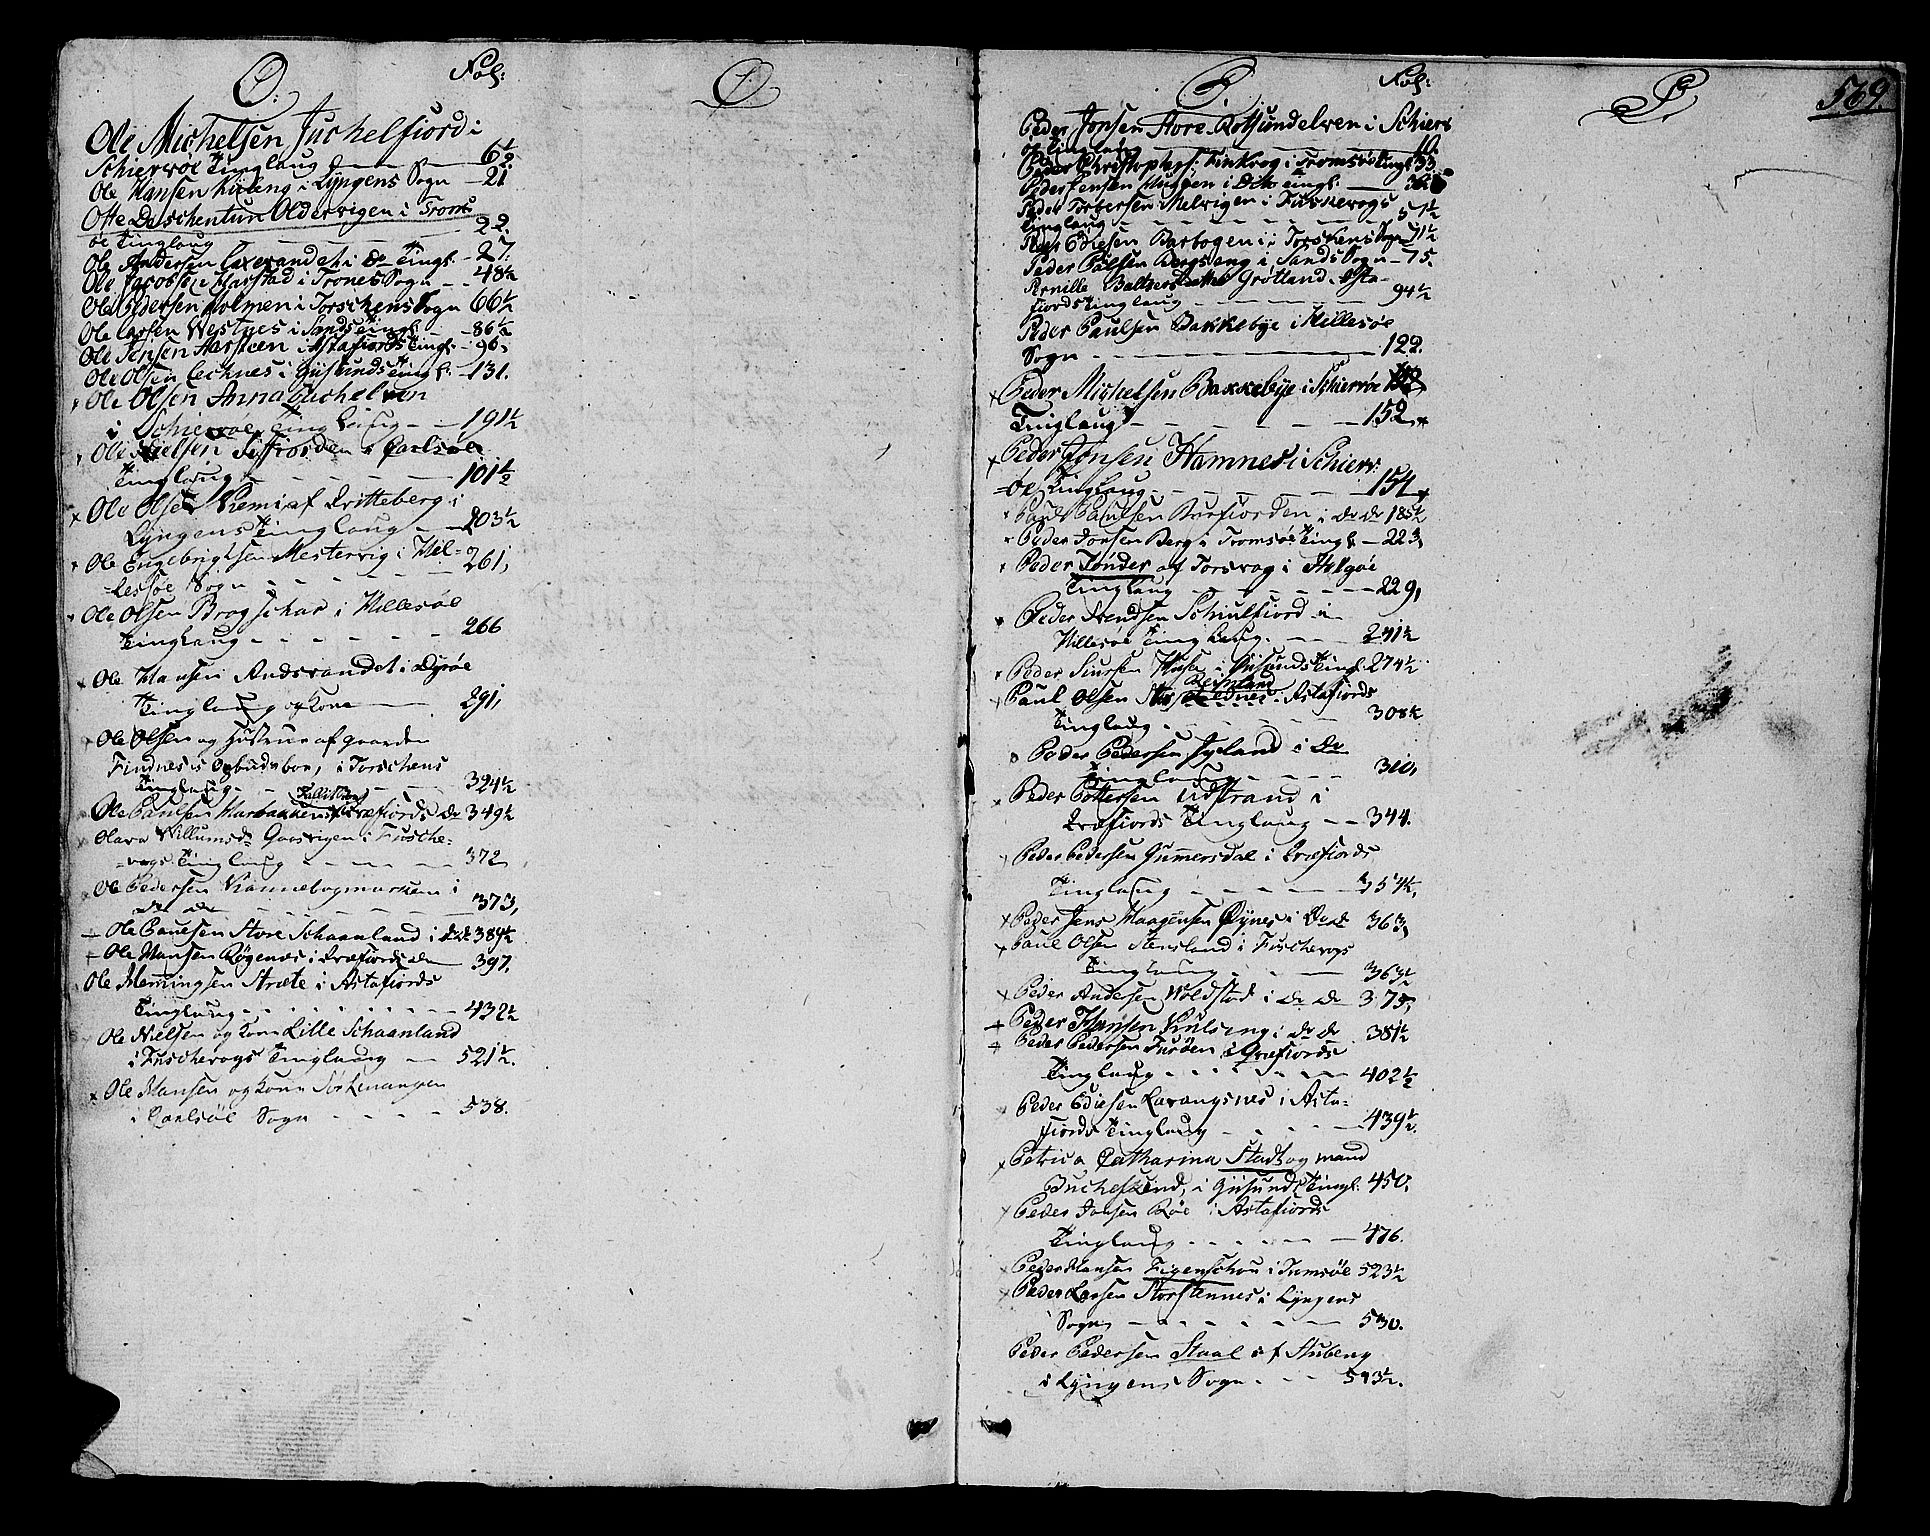 O.
Fol:
Ole Michelsen Juchelfiord i
Schiervøe Tinglaug - - - 6½
Ole Hansen Kileng i Lyngens Sogn - 21
Otte Daschentun Oldervigen i Troms
øe Tinglaug - - - 22.
Ole Andersen Laxevandet i do Tingl. - 27.
Ole Jacobsen Harstad i Trones Sogn - - 48½
Ole Pedersen Holmen i Torschens Sogn 66½
Ole Larsen Westnes i Sands Tingl. - 86½
Ole Jensen Aarsteen i Astafiords Tingl. - 96.
Ole Olsen Lechnes i Gisunds Tingl. - 131.
Ole Olsen Anna Juchelven
i Schiervøe Tinglaug - - 191½
Ole Nielsen i Carlsøe
Tinglaug - - - 101½
Ole Olsen Kemi af Qvitteberg i
Lyngens Tinglaug - - 203½
Ole Engebrigtsen Mestervig i Hil-
lessøe Sogn - - - 261,
Ole Olsen Brogschar i Hillesøe
Tinglaug - - - 266
Ole Hansen Andsvandet i Dyrøe
Tinglaug og Kone - 291,
Ole Olsen og Hustrue af gaarden
Findnes i Torschens
Tinglaug - - - 324½
Ole Paulsen Qvæfiords do 349½
Olava Villumsd: Gaasvigen i Fusche-
vogs Tinglaug - - - 372
Ole Pedersen Kannebogmarken i
do do - - - 373,
Ole Paulsen Store Schaanland i do do 389½
Ole Hansen Røgenes i Qvæfiords do 397.
Ole Hemmingsen Stræte i Astafiords
Tinglaug - - - 432½
Ole Nielsen og Kone Lille Schaanland
i Fuschevogs Tinglaug - 521½.
Ole Hansen og Kone Sørlenangen
i Carlsøe Sogn - - - 538.
O
P.
Fol:
Peder Jonsen Store Rotsundelven i Schierv
øe Tinglaug - - - 10.
Peder Christophers: Finkrog i Tromsøe Tingl. 33.
Peder Jensen i Ditto Tingl. - 36
Peder Torbersen Melvigen i Fuskevogs
Tinglaug - - - 51½
Peder Ediesen Barbogen i Torskens Sogn 71½
Peder Pålsen Bergseng i Sands Sogn - 75.
Pernille Baltzersdatter Grøtland Asta
fiords Tinglaug - - - 94½
Peder Paulsen Bakkebye i Hillesøe
Sogn - - - 122.
Peder Michelsen Bakkebye i Schiervøe
Tinglaug - - - 152.
Peder Jonsen Hamnes i Schierv:
øe Tinglaug - - - 154
Paul Paulsen Burfiorden i do do 185½
Peder Jonsen Berg i Tromsøe Tingl. - 223,
Peder Tønder af Torsvog i Helgøe
Tinglaug - - - 229,
Peder Svendsen Schiulfiord i
Hillesøe Tinglaug - - 241½
Peder Siursen i Gisunds Tingl. 274½
Reinland
Paul Olsen Astafiords
Tinglaug - - - 308½
Peder Pedersen Jyland i do
Tinglaug - - - 310,
Peder Pettersen Udstrand i
Qvæfiords Tinglaug - - 344.
Peder Pedersen Gummersdal i Qvæfiords
Tinglaug - - - 354½,
Peder Jens Haagensen Øynes i do do 363,
Paul Olsen Stensland i Fuschevogs
Tinglaug - - - 363½
Peder Andersen Voldstad i do do 375,
Peder Hansen Kulseng i do do 381½
Peder Pedersen i Qvæfiords
Tinglaug - - - 402½
Peder Ediesen Lavangsnes i Asta-
fiords Tinglaug - - - 439½.
Petrica Catharina Stadt og mand
i Gisunds Tingl. 450,
Peder Jonsen Røe i Astafiords
Tinglaug - - - 476.
Peder Hansen Figenschou i Tromsøe 523½
Peder Larsen Storstennes i Lyngens
Sogn - - - 530.
Peder Pedersen Staal af Skibeng
i Lyngens Sogn - - - 543½.
P.
569.